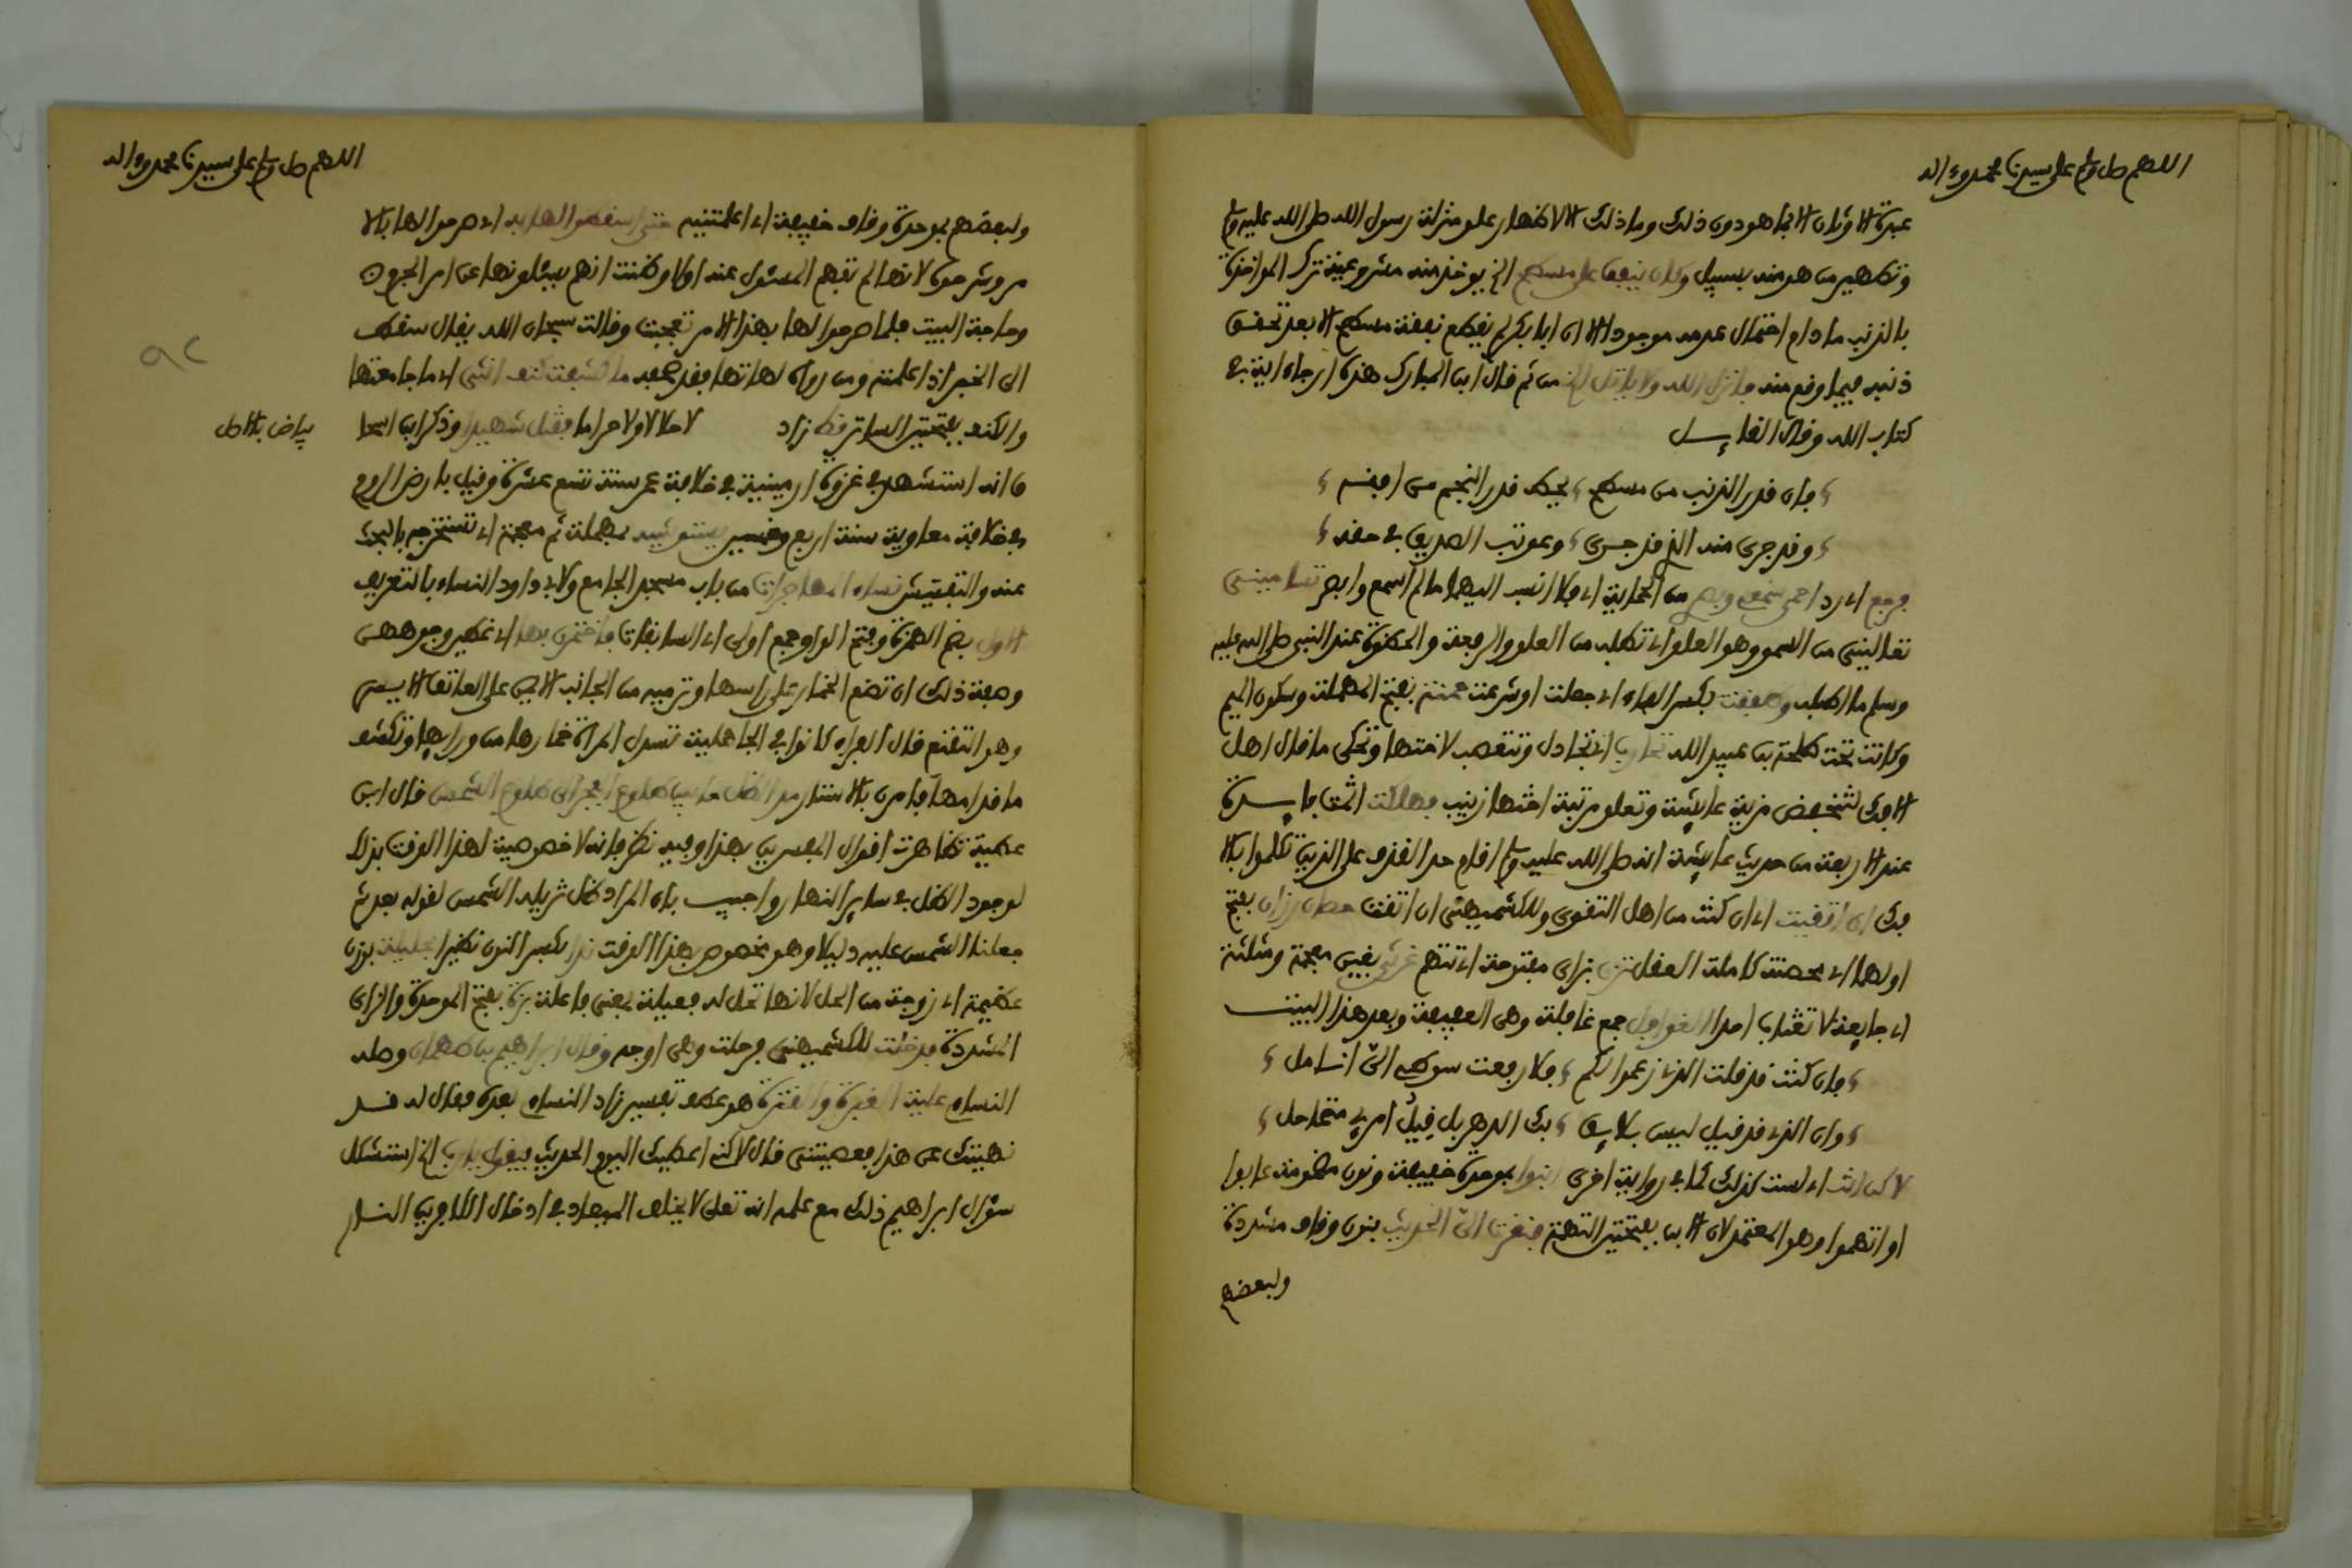 اللهم صل وسلم على سيدنا محمد وءاله
عبدة الاوثان الا بما هو دون ذلك وما ذلك الا لاظهار علو منزلة رسول الله صلى الله عليه وسلم
وتطهير من هو منه بسبيل وكان ينفق على مسطح الخ يوخذ منه مشروعية ترك المواخذة
بالذنب ما دام احتمال عدمه موجودا الا ان ابا بكر لم يقطع نفقة مسطح الا بعد تحقق
ذنبه فيما وقع منه فانزل الله ولا ياتل الخ من ثم قال ابن المبارك هذه ارجا ءاية في
كتاب الله وقال القايــل
فان قدر الذنب من مسطح يحط قدر النجم من افقه
وقد جرى منه الذي قد جــرى وعوتب الصديق في حقه
فرجع اي رد احمي سمعي وبصري من الحماية اي فلا انسب اليهما ما لم اسمع وابصر تساميني
تعاليني من السمو وهو العلو اي تطلب من العلو والرفعة والحظوة عند النبي صلى الله عليه
وسلم ما اطلب وطفقت بكسر الفاء اي جعلت او شرعت حمنة بفتح المهملة وسكون الميم
وكانت تحت طلحة بن عبيد الله تحارب اي تجادل وتتعصب لاختها وتحكي ما قال اهل
الافك لتنخفض مزية عايشة وتعلو مرتبة اختها زينب فهلكت اثمت فايــدة
عند الاربعة من حديث عايشة انه صلى الله عليه وسلم اقام حد القذف على الذين تكلموا بالا
فك ان اتقيت اي ان كنت من اهل التقوى وللكشميهني ان اتقت حصان رزان بفتح
اولهما اي محصنة كاملة العقل تزن بزاي مفتوحة اي تتهم غرثى بغين معجمة ومثلثة
اي جايعة لا تغتاب احدا الغوافل جمع غافلة وهي العفيفة وبعد هذا البيت
فان كنت قد قلت الذي زعموا لكم فلا رفعت سوطي الي انــامل
وان الذي قد قيل ليس بلايق بك الدهر بل قيل امرئ متماحل
لاكن انت اي لست كذلك كما في رواية اخرى ابنوا بموحدة خفيفة ونون مضمومة عابوا
او اتهموا وهو المعتمد لان الابن بفتحتين التهمة فنقرت الي الحديث بنون وقاف مشددة
ولبعضهم
اللهم صل وسلم على سيدنا محمد وءاله
ولبعضهم بموحدة وقاف خفيفة اي اعلمتنيه حتى اسقطوا لها به اي صرحوا لها بالا
مر وشرحوه لانها لم تفهم المسئول عنه اولا وظنت انهم يسئلونها عن امر العجين
وحاجة البيت فلما صرحوا لها بهذا الامر تعجبت وقالت سبحان الله يقال سقطت
الى الخبر اذا علمته ومن رواه لهاتها فقد صحف ما كشفت كنف انثى اي ما جامعتها
والكنف بفتحتين الساتر قط زاد لا حلالا ولا حراما فقتل شهيدا وذكر ابن اسحا
ق انه استشهد في غزوة ارمينية في خلافة عمر سنة تسع عشرة وقيل بارض الروم
بياض بالاصل
في خلافة معاوية سنة اربع وخمسين يستوشيه بمهملة ثم معجمة اي تستخرجه بالبحث
عنه والتفتيش نساء المهاجرات من باب مسجد الجامع ولابي داود النساء بالتعريف
الاول بضم الهمزة وفتح الواو جمع اولى اي السابقات فاختمرن بها اي غطين وجوههن
وصفة ذلك ان تضع الخمار على راسها وترميه من الجانب الايمن على العاتق الايسر
وهو التقنع قال الفراء كانوا في الجاهلية تسدل المراة خمارها من ورايها وتكشف
ما قدامها فامرن بالاستتار مد الظل ما بين طلوع الفجر الى طلوع الشمس قال ابن
عطية تظاهرت اقوال المفسرين بهذا وفيه نظر فانه لا خصوصية لهذا الوقت بذلك
لوجود الظل في ساير النهار واجيب بان المراد ظل تزيله الشمس لقوله بعد ثم
جعلنا الشمس عليه دليلا وهو مخصوص بهذا الوقت ندا بكسر النون نظيرا حليلة بوزن
عظيمة اي زوجة من الحل لانها تحل له فعيلة بمعنى فاعلة بزة بفتح الموحدة والزاي
المشددة فدخلت للكشميهني فرحلت وهي اوجه وقال ابراهيم بن طهمان وصله
النساء عليه الغبرة والقترة هو عطف تفسير زاد النساء بعده فقال له قــد
نهيتك عن هذا فعصيتني قال لاكنه اعطيك اليوم الحديث فيقول يارب الخ استشكل
سؤال ابراهيم ذلك مع علمه انه تعلى لا يخلف الميعاد في ادخال الكافرين النــار